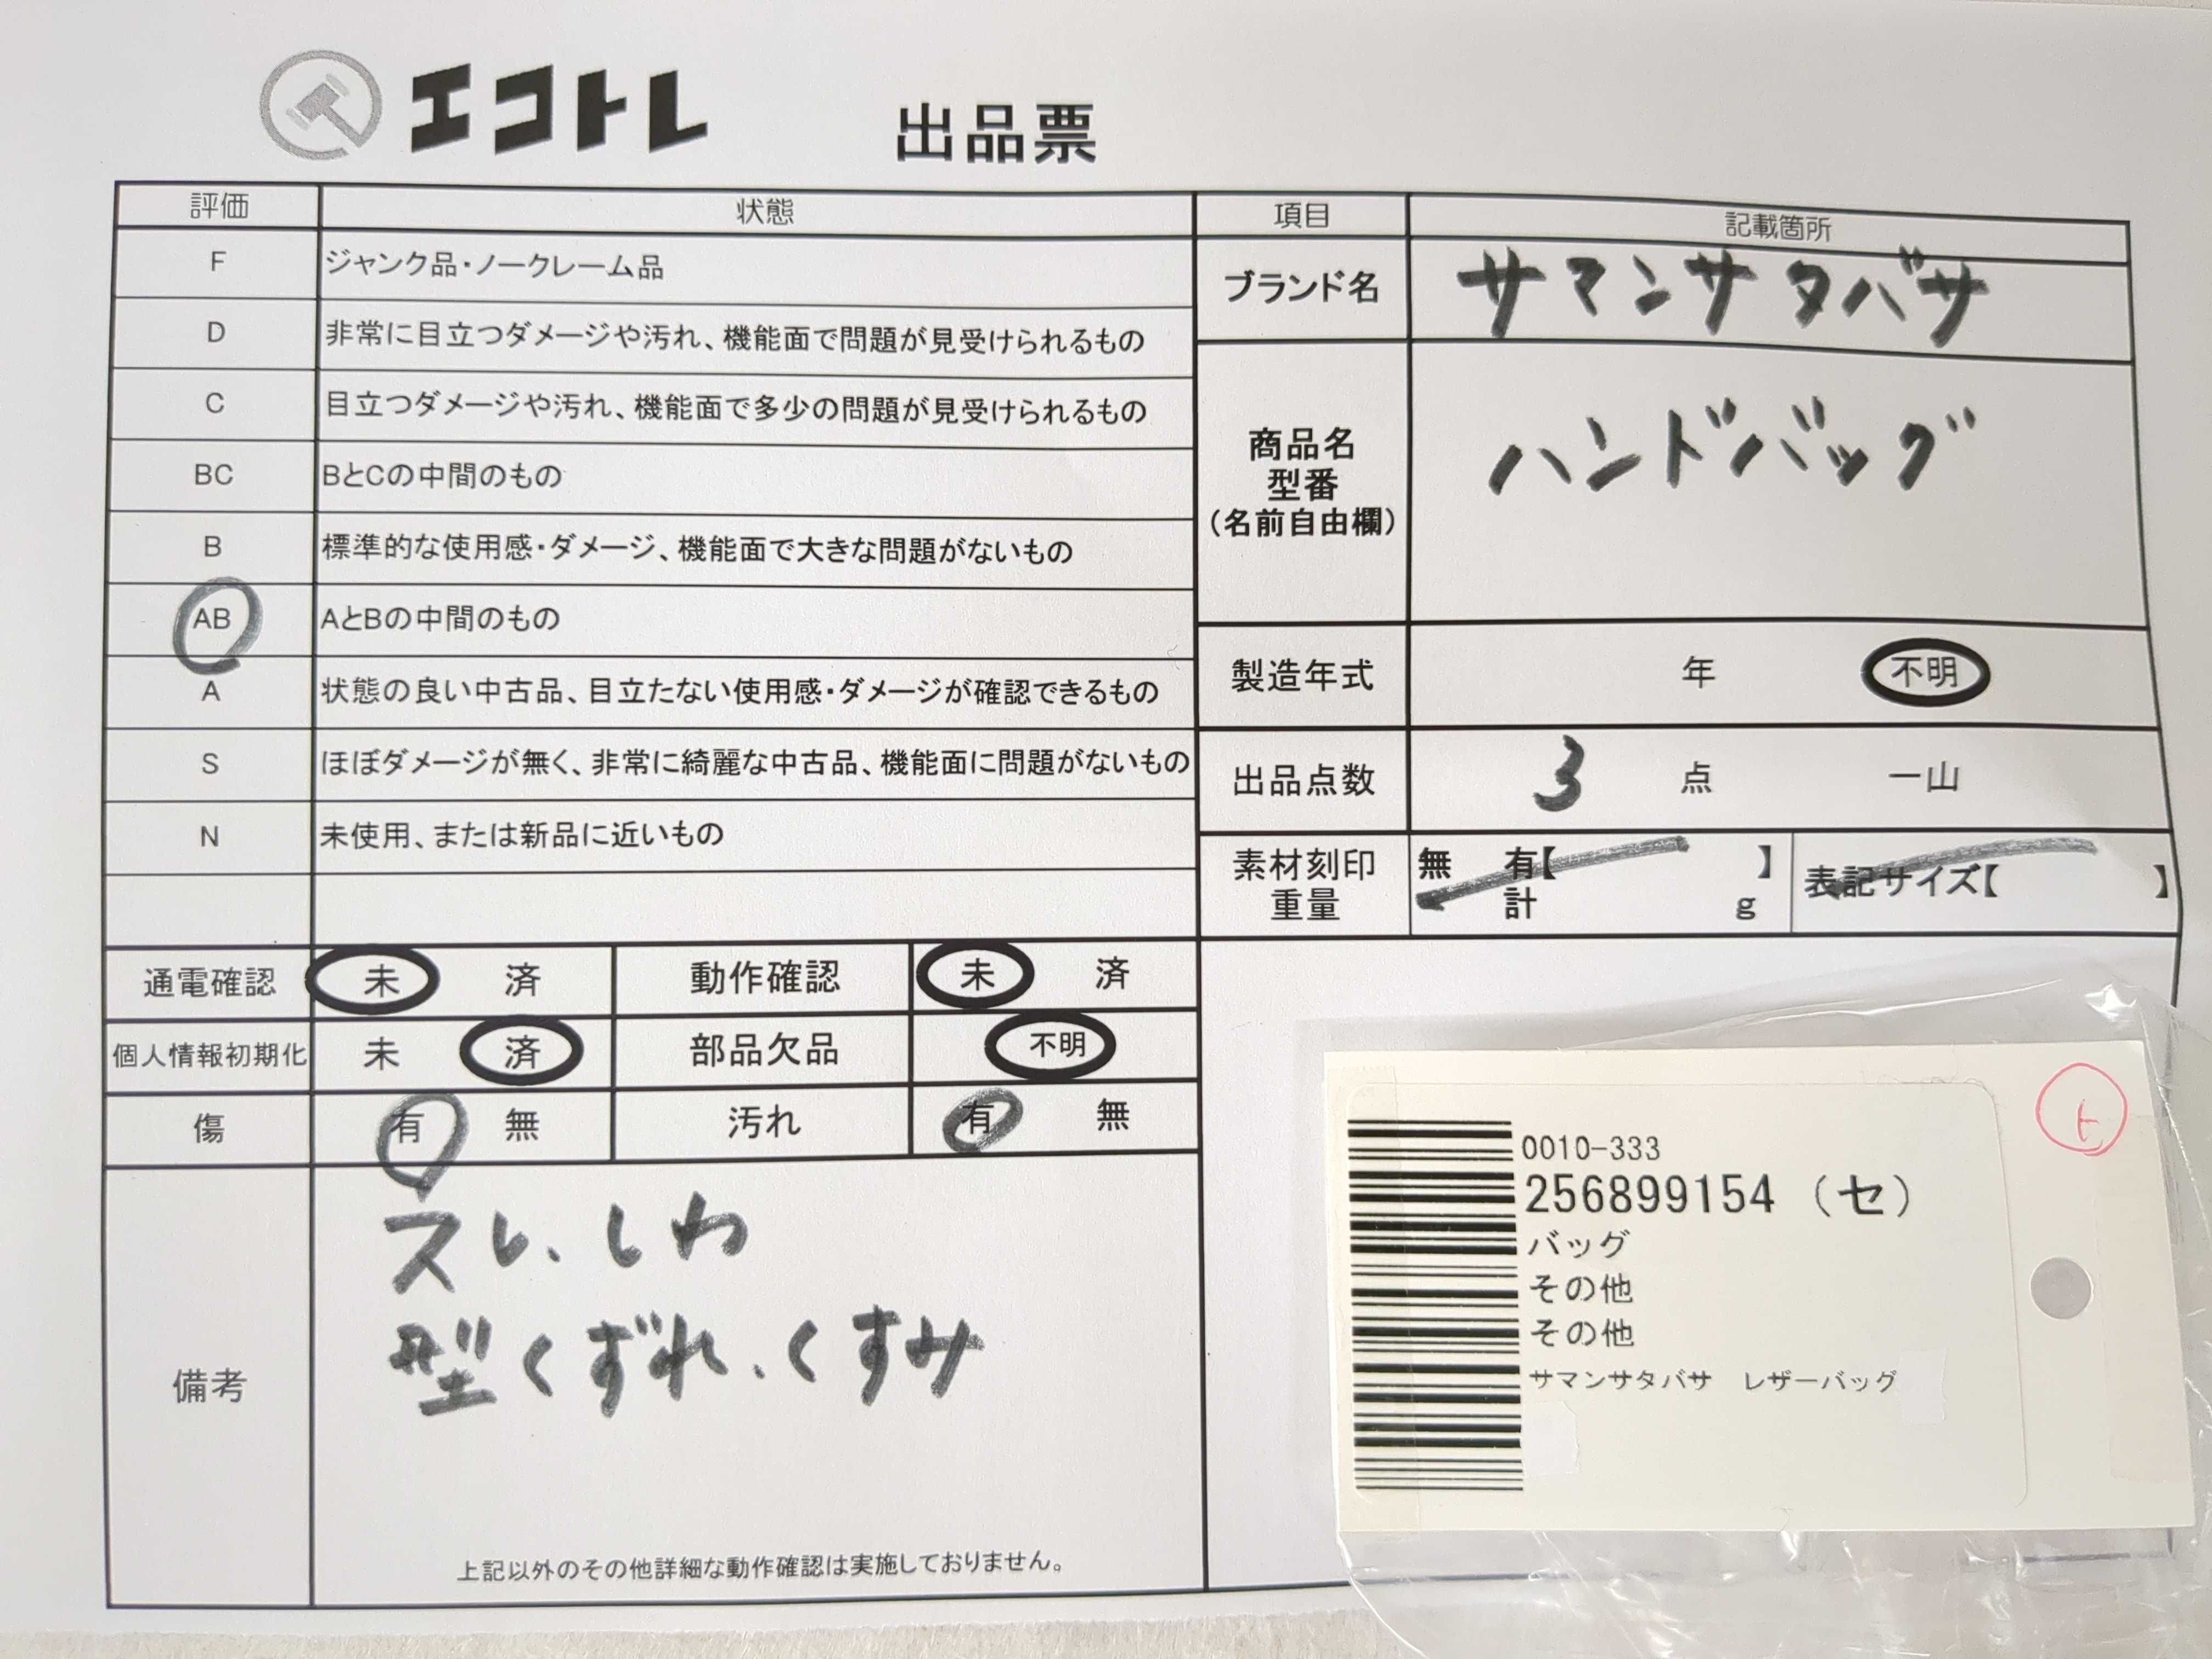 エコトレ
出品票
評価 状態
F ジャンク品・ノークレーム品
D 非常に目立つダメージや汚れ、機能面で問題が見受けられるもの
C 目立つダメージや汚れ、機能面で多少の問題が見受けられるもの
BC BとCの中間のもの
B 標準的な使用感・ダメージ、機能面で大きな問題がないもの
AB AとBの中間のもの
A 状態の良い中古品、目立たない使用感・ダメージが確認できるもの
S ほぼダメージが無く、非常に綺麗な中古品、機能面に問題がないもの
N 未使用、または新品に近いもの
項目 記載箇所
ブランド名 サマンサタバサ
商品名
型番
(名前自由欄)
ハンドバッグ
製造年式 年 不明
出品点数 3 点 一山
素材刻印
重量
無 有【 】
計 g
表記サイズ【 】
通電確認 未 済 動作確認 未 済
個人情報初期化 未 済 部品欠品 不明
傷 有 無 汚れ 有 無
備考
スレ、しわ
型くずれ、くすみ
上記以外のその他詳細な動作確認は実施しておりません。
0010-333
256899154 (セ)
バッグ
その他
その他
サマンサタバサ レザーバッグ